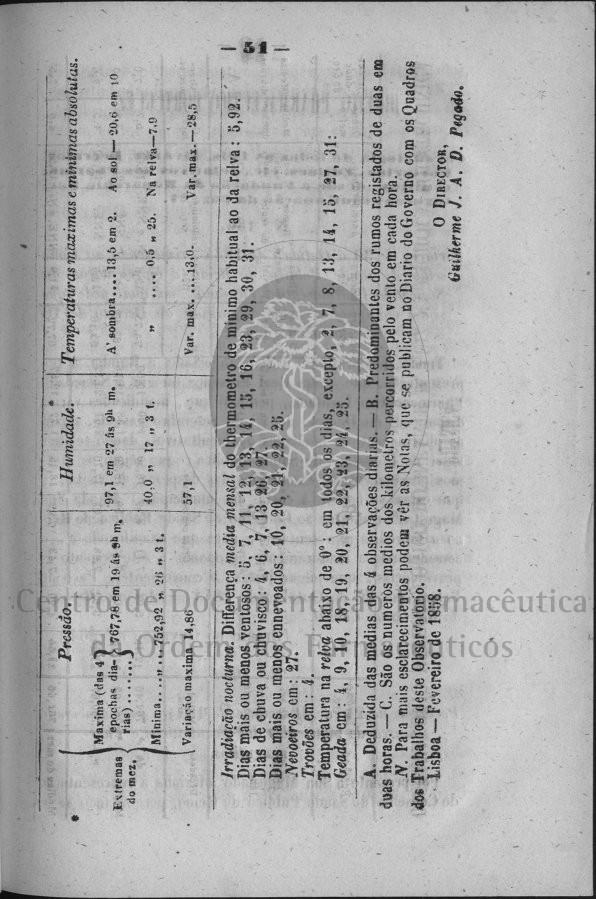 — 51 —
* Pressão. Humidade. Temperaturas maximas e minimas absolutas.
Extremas do mez.
Maxima (das 4 epochas diarias)....... 767,78 em 19 ás 9h m. 97,1 em 27 ás 9h m. A' sombra.... 13,5 em 2. Ao sol — 20,6 em 10
Minima........ 752,92 „ 26 „ 3 t. 40,0 „ 17 „ 3 t. „ .... 0,5 „ 25. Na relva—7,9
Variação maxima 14,86 57,1 Var. max. ... 13,0. Var. max.—28,5
Irradiação nocturna. Differença media mensal do thermometro de minimo habitual ao da relva: 5,92.
Dias mais ou menos ventosos: 5, 7, 11, 12, 13, 14, 15, 16, 23, 29, 30, 31.
Dias de chuva ou chuvisco: 4, 6, 7, 13 26, 27.
Dias mais ou menos ennevoados: 10, 20, 21, 22, 25.
Nevoeiros em: 27.
Trovões em: 4.
Temperatura na relva abaixo de 0°: em todos os dias, excepto, 2, 7, 8, 13, 14, 15, 27, 31:
Geada em: 4, 9, 10, 18, 19, 20, 21, 22, 23, 24, 25.
A. Deduzida das medias das 4 observações diarias. — B. Predominantes dos rumos registados de duas em
duas horas. — C. São os numeros medios dos kilometros percorridos pelo vento em cada hora.
N. Para mais esclarecimentos podem vêr as Notas, que se publicam no Diario do Governo com os Quadros
dos Trabalhos deste Observatorio.
Lisboa — Fevereiro de 1858.
O Director,
Guilherme J. A. D. Pegado.
Centro de Documentação Farmacêutica
da Ordem dos Farmacêuticos